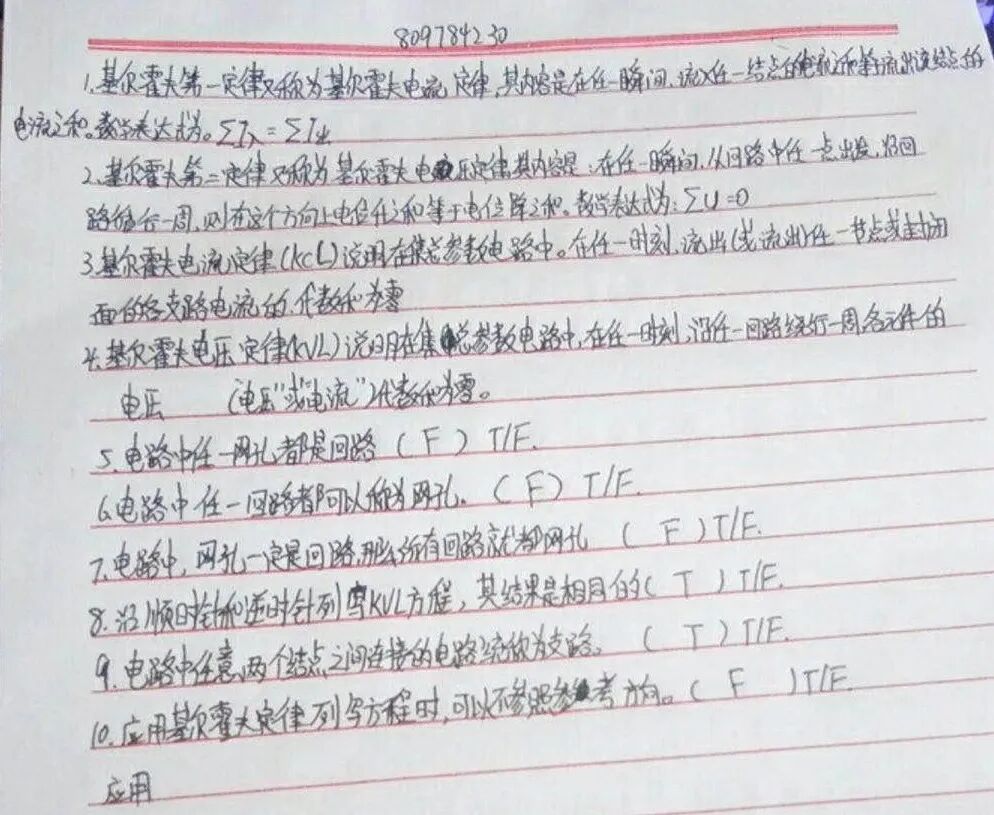 809784230
1.基尔霍夫第一定律又称为基尔霍夫电流定律,其内容是在任一瞬间,流入任一结点的电流之和等于流出该结点的
电流之和。数学表达式为。ΣI入=ΣI出
2.基尔霍夫第二定律又称为基尔霍夫电压定律其内容是:在任一瞬间,从回路中任一点出发,沿回
路绕行一周,则在这个方向上电位升之和等于电位降之和。数学表达式为:ΣU=0
3.基尔霍夫电流定律(KCL)说明在集总参数电路中。在任一时刻,流出(或流出)任一节点或封闭
面的各支路电流的代数和为零
4.基尔霍夫电压定律(KVL)说明在集总参数电路中,在任一时刻,沿任一回路绕行一周,各元件的
电压 (电压"或"电流")代数和为零。
5.电路中任一网孔都是回路 ( F ) T/F.
6.电路中任一回路都可以称为网孔. ( F ) T/F.
7.电路中,网孔一定是回路,那么所有回路就都网孔 ( F ) T/F.
8.沿顺时针和逆时针列写KVL方程,其结果是相同的( T ) T/F.
9.电路中任意两个结点之间连接的电路统称为支路。 ( T ) T/F.
10.应用基尔霍夫定律列写方程时,可以不参照参考方向。( F ) T/F.
应用